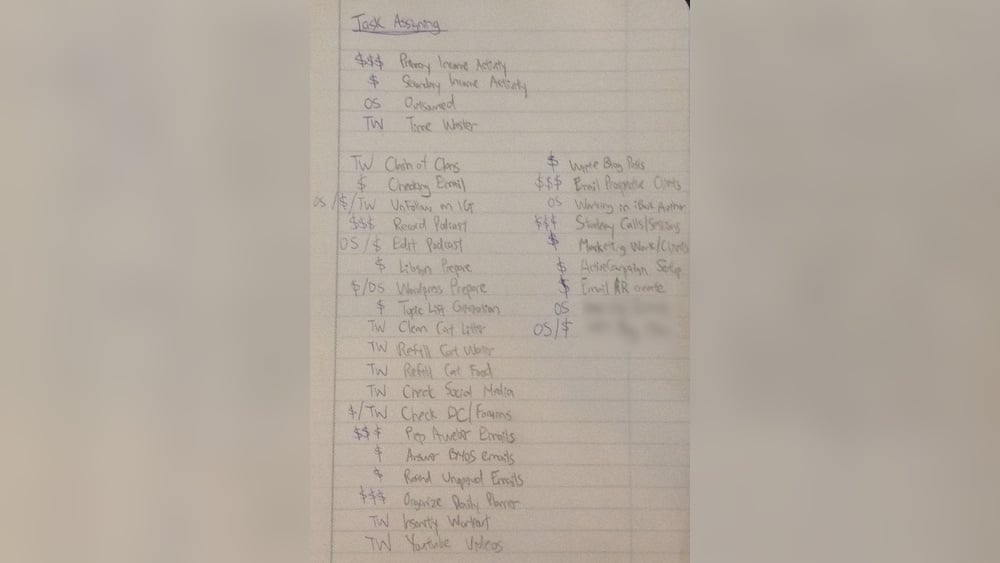 Task Assigning
$$$ Primary Income Activity
$ Secondary Income Activity
OS Outsourced
TW Time Waster
TW Clash of Clans
$ Checking Email
OS/$/TW Unfollow on IG
$$$ Record Podcast
OS/$ Edit Podcast
$ Libsyn Prepare
$/OS Wordpress Prepare
$ Topic List Generation
TW Clean Cat Litter
TW Refill Cat Water
TW Refill Cat Food
TW Check Social Media
$/TW Check DC/Forums
$$$ Prep Aweber Emails
$ Answer BYOS emails
$ Unopened Emails
$$$ Organize Daily Planner
TW Insanity Workout
TW Youtube Videos
$ Write Blog Posts
$$$ Email Prospective Clients
OS Working in iBook Author
$$$ Calls/Sessions
$ Marketing Work/Clients
$ ActiveCampaign Setup
$ Email AR create
OS
OS/$